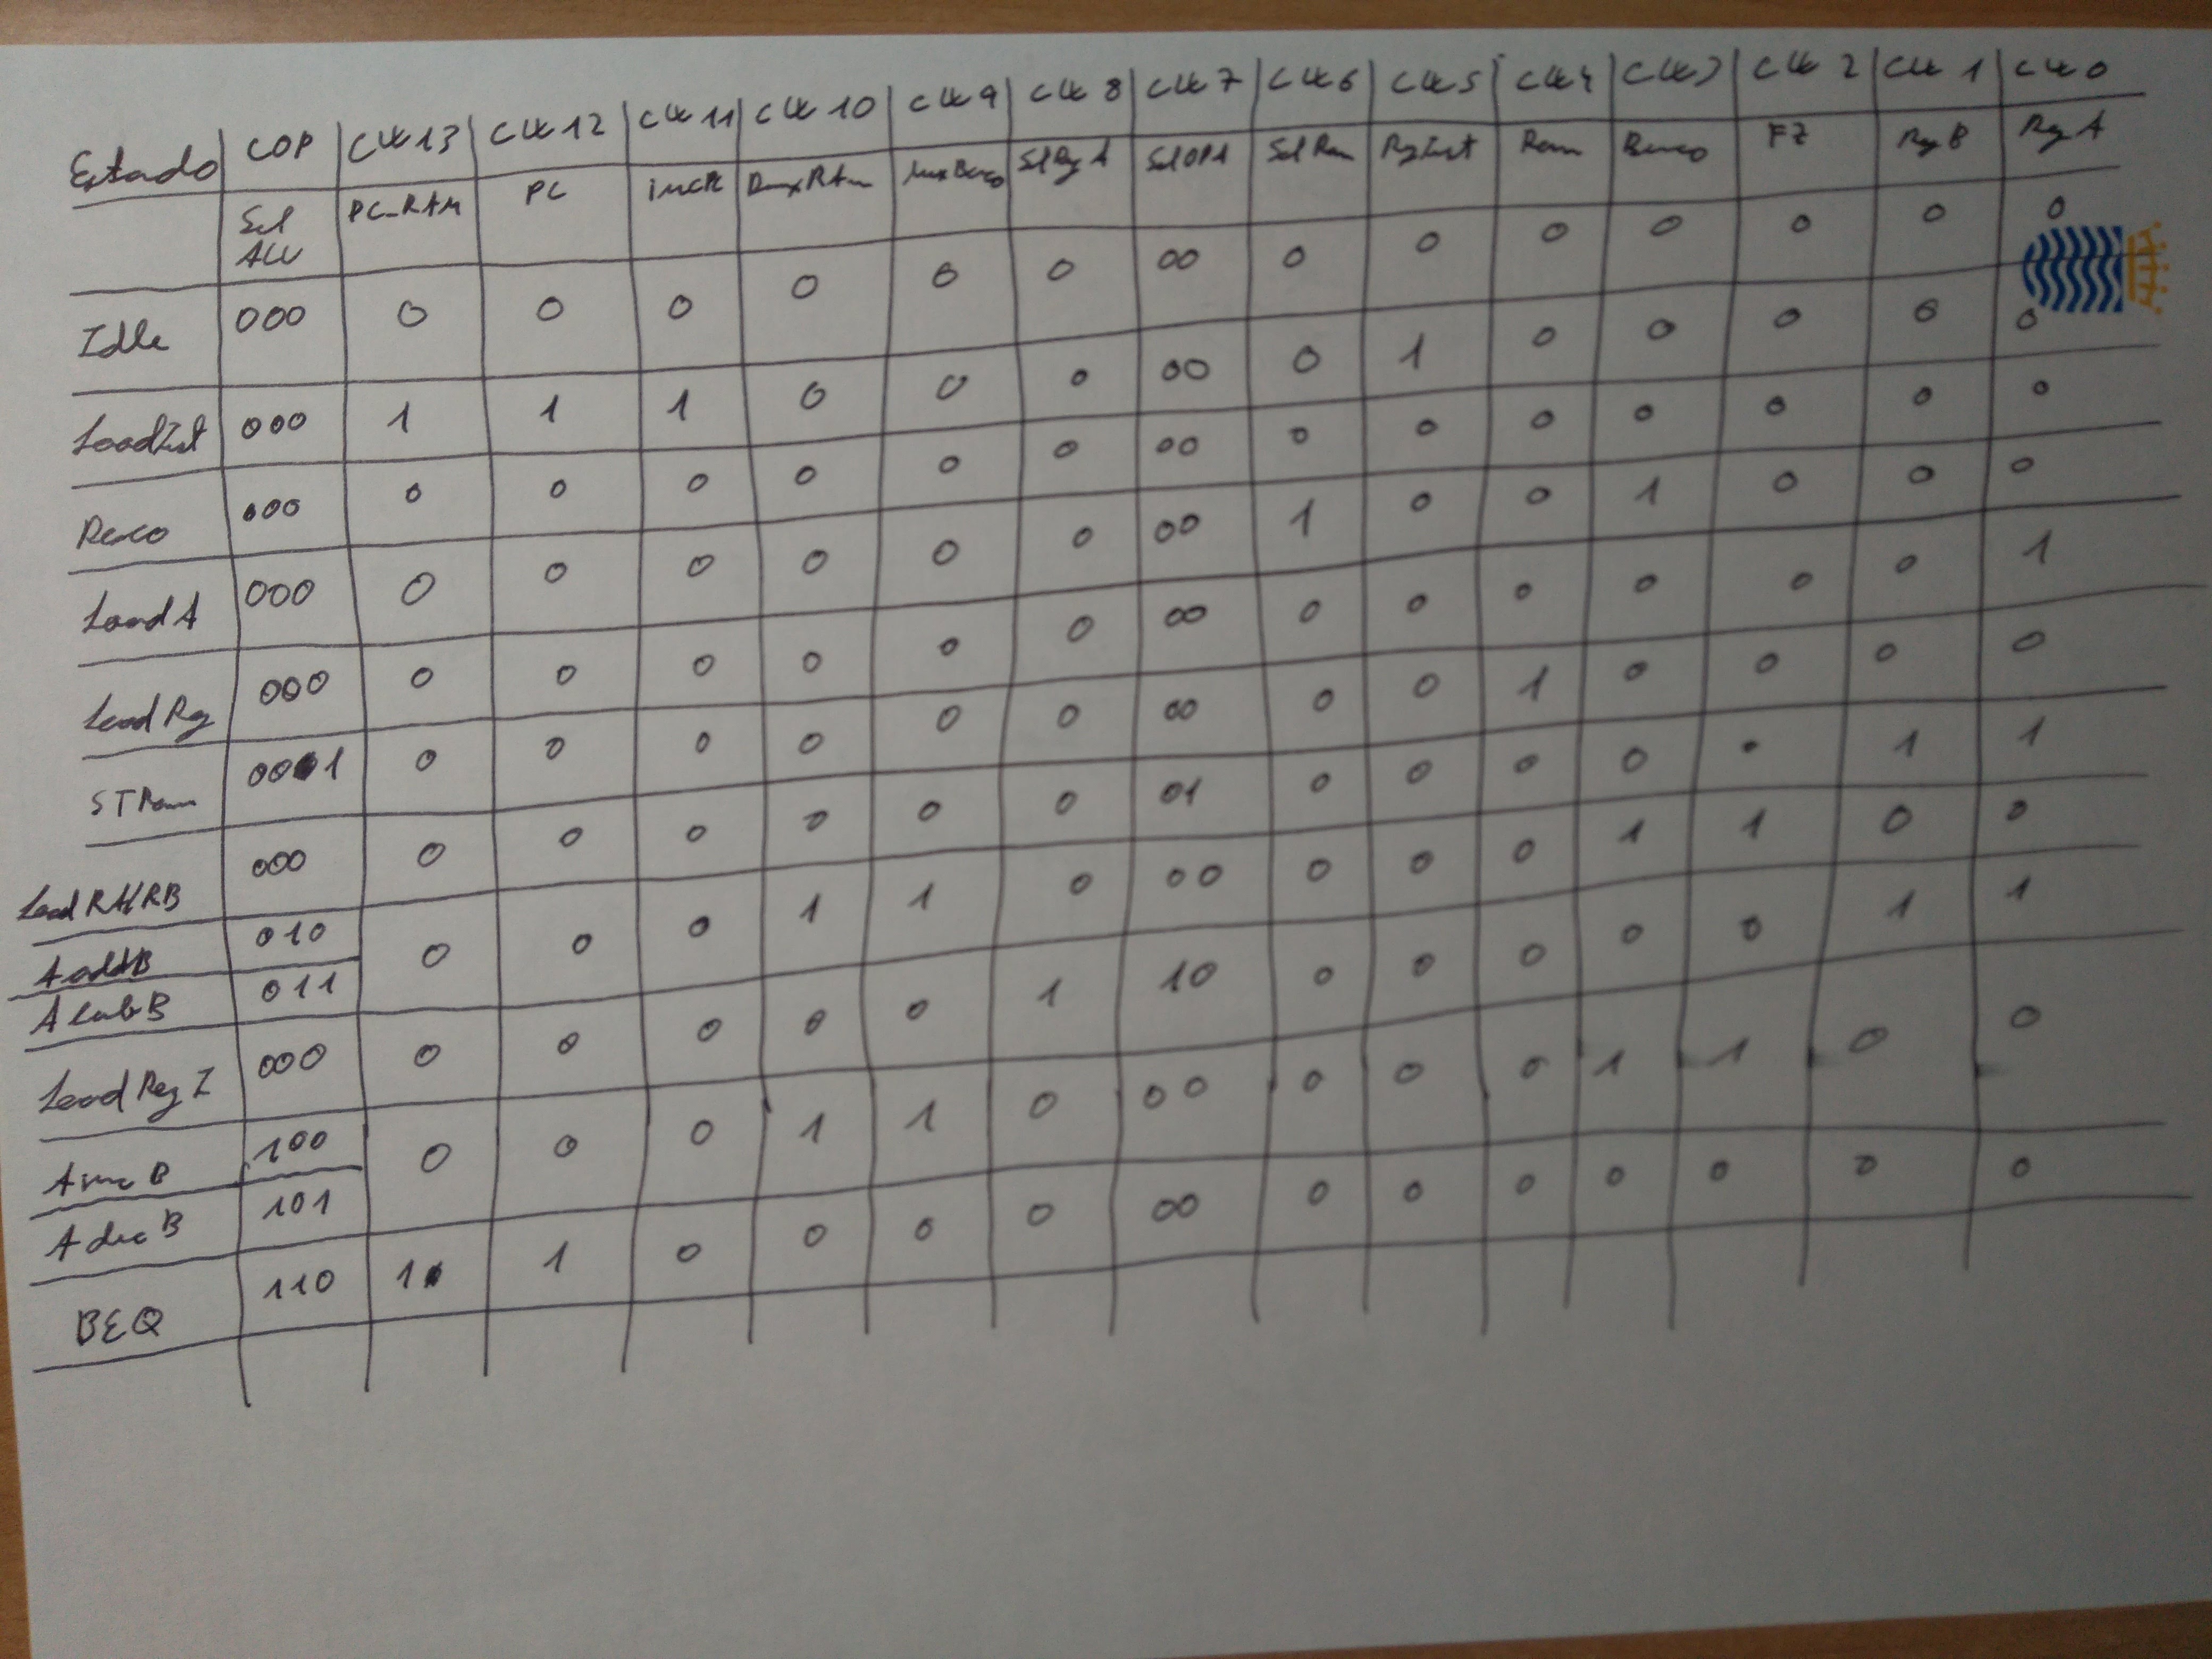 Estado COP CLK13 CLK12 CLK11 CLK10 CLK9 CLK8 CLK7 CLK6 CLK5 CLK4 CLK3 CLK2 CLK1 CLK0
Sel ALU PC_RAM PC incR DmxRAm MuxBanco SelRgA SelOPA SelRam RgInst Ram Banco FZ RgB RgA
Idle 000 0 0 0 0 0 0 00 0 0 0 0 0 0 0
LoadInst 000 1 1 1 0 0 0 00 0 1 0 0 0 0 0
Reco 000 0 0 0 0 0 0 00 0 0 0 0 0 0 0
Load A 000 0 0 0 0 0 0 00 1 0 0 1 0 0 0
Load Rg 000 0 0 0 0 0 0 00 0 0 0 0 0 0 1
STRam 001 0 0 0 0 0 0 00 0 0 1 0 0 0 0
Load RA/RB 000 0 0 0 0 0 0 01 0 0 0 0 0 1 1
A add B 010 0 0 0 1 1 0 00 0 0 0 1 1 0 0
A sub B 011
Load Reg I 000 0 0 0 0 0 1 10 0 0 0 0 0 1 1
A inc B 100 0 0 0 1 1 0 00 0 0 0 1 1 0 0
A dec B 101
BEQ 110 1 1 0 0 0 0 00 0 0 0 0 0 0 0